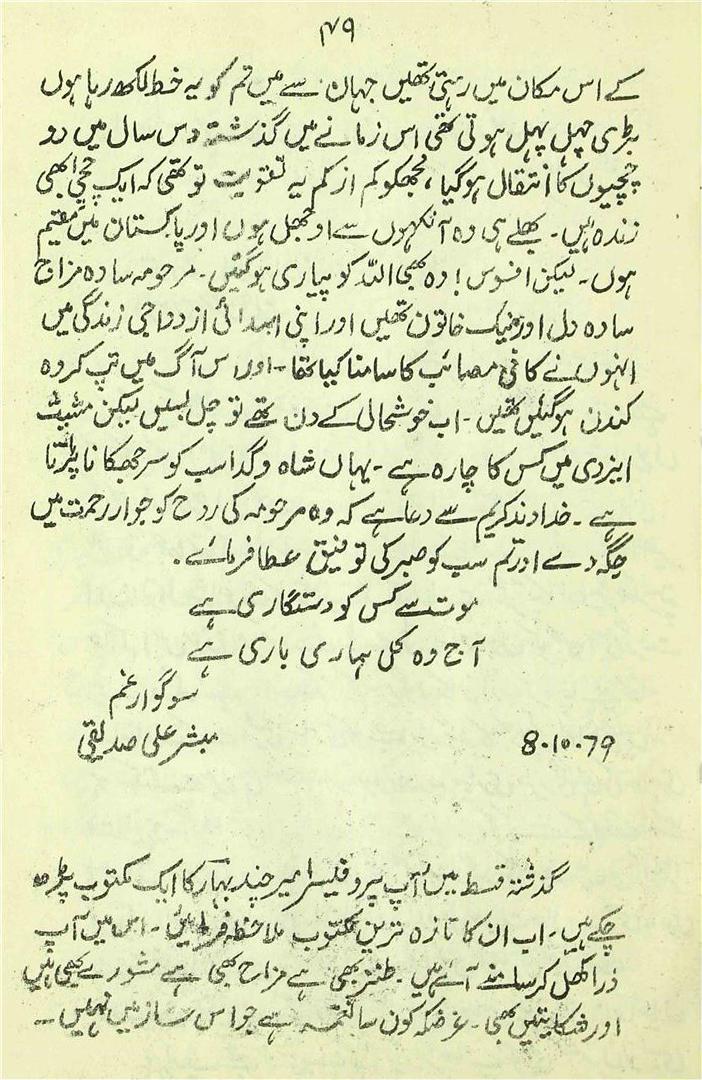 ۴۹
کے اس مکان میں رہتی تھیں جہاں سے میں تم کو یہ خط لکھ رہا ہوں
بڑی چہل پہل ہوتی تھی اس زمانے میں گذشتہ دس سال میں دو
چچیوں کا انتقال ہوگیا، مجھکو کم از کم یہ تقویت تو تھی کہ ایک چچی ابھی
زندہ ہیں۔ بھلے ہی وہ آنکہوں سے اوجھل ہوں اور پاکستان میں مقیم
ہوں۔ لیکن افسوس! وہ بھی اللہ کو پیاری ہوگئیں۔ مرحومہ سادہ مزاج
سادہ دل اور نیک خاتون تھیں اور اپنی ابتدائی ازدواجی زندگی میں
انہوں نے کافی مصائب کا سامنا کیا تھا۔ اور اس آگ میں تپ کر وہ
کندن ہوگئیں تھیں۔ اب خوشحالی کے دن تھے تو چل بسیں لیکن مشیت
ایزدی میں کس کا چارہ ہے۔ یہاں شاہ و گدا سب کو سر جھکانا پڑتا
ہے۔ خداوند کریم سے دعا ہے کہ وہ مرحومہ کی روح کو جوار رحمت میں
جگہ دے اور تم سب کو صبر کی توفیق عطا فرمائے۔
موت سے کس کو رستگاری ہے
آج وہ کل ہماری باری ہے
سوگوار غم
مبشر علی صدیقی
8.10.79
گذشتہ قسط میں آپ پروفیسر امیر چند بہار کا ایک مکتوب پڑھ
چکے ہیں۔ اب ان کا تازہ ترین مکتوب ملاحظہ فرمائیں۔ اس میں آپ
ذرا کھل کر سامنے آئے ہیں۔ طنز بھی ہے مزاح بھی ہے مشورے بھی ہیں
اور شکایتیں بھی۔ غرضکہ کون سا نغمہ ہے جو اس ساز میں نہیں۔